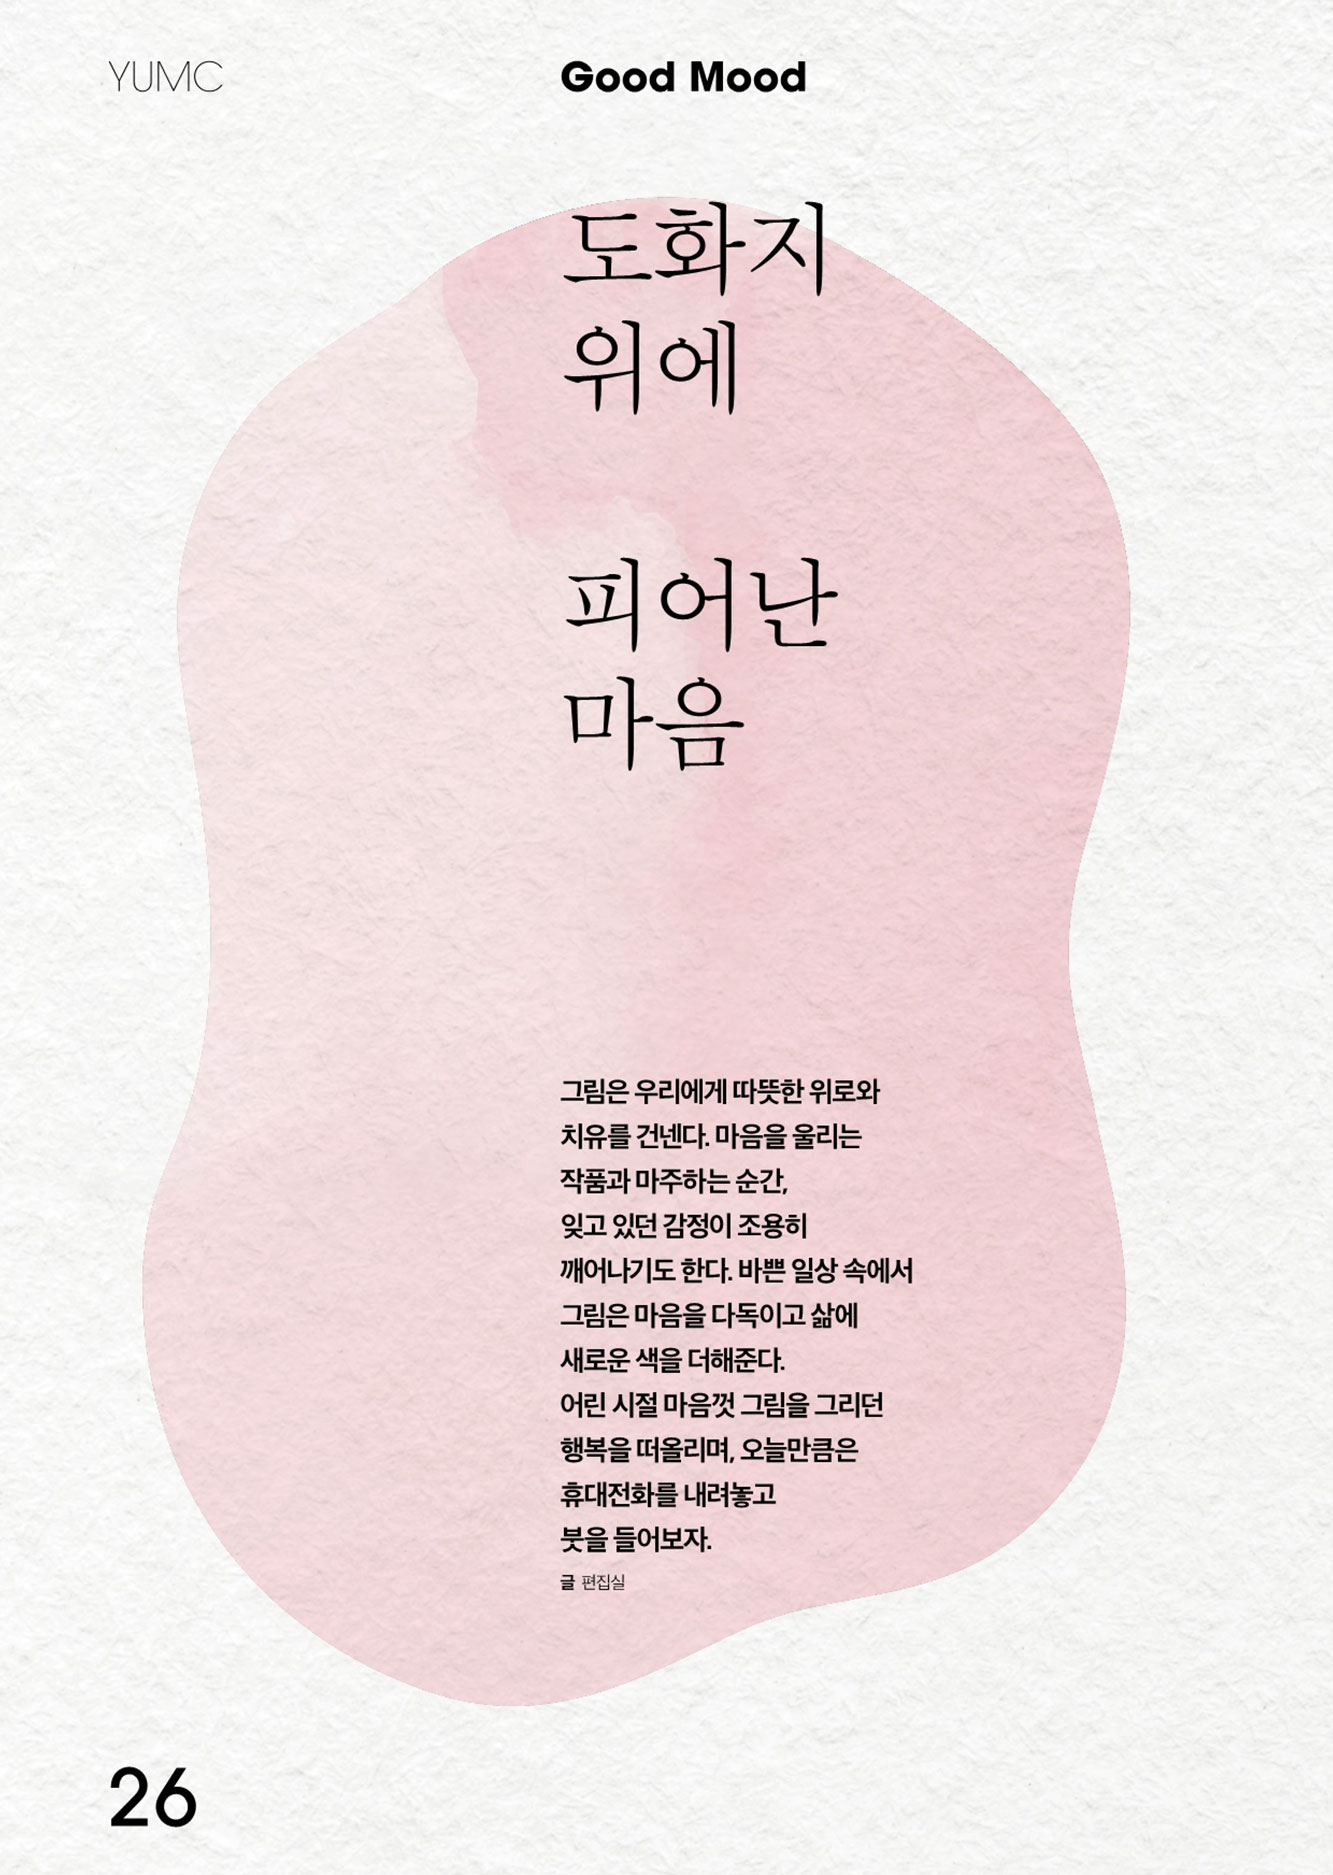 YUMC
Good Mood
도화지
위에
피어난
마음
그림은 우리에게 따뜻한 위로와
치유를 건넨다. 마음을 울리는
작품과 마주하는 순간,
잊고 있던 감정이 조용히
깨어나기도 한다. 바쁜 일상 속에서
그림은 마음을 다독이고 삶에
새로운 색을 더해준다.
어린 시절 마음껏 그림을 그리던
행복을 떠올리며, 오늘만큼은
휴대전화를 내려놓고
붓을 들어보자.
글 편집실
26